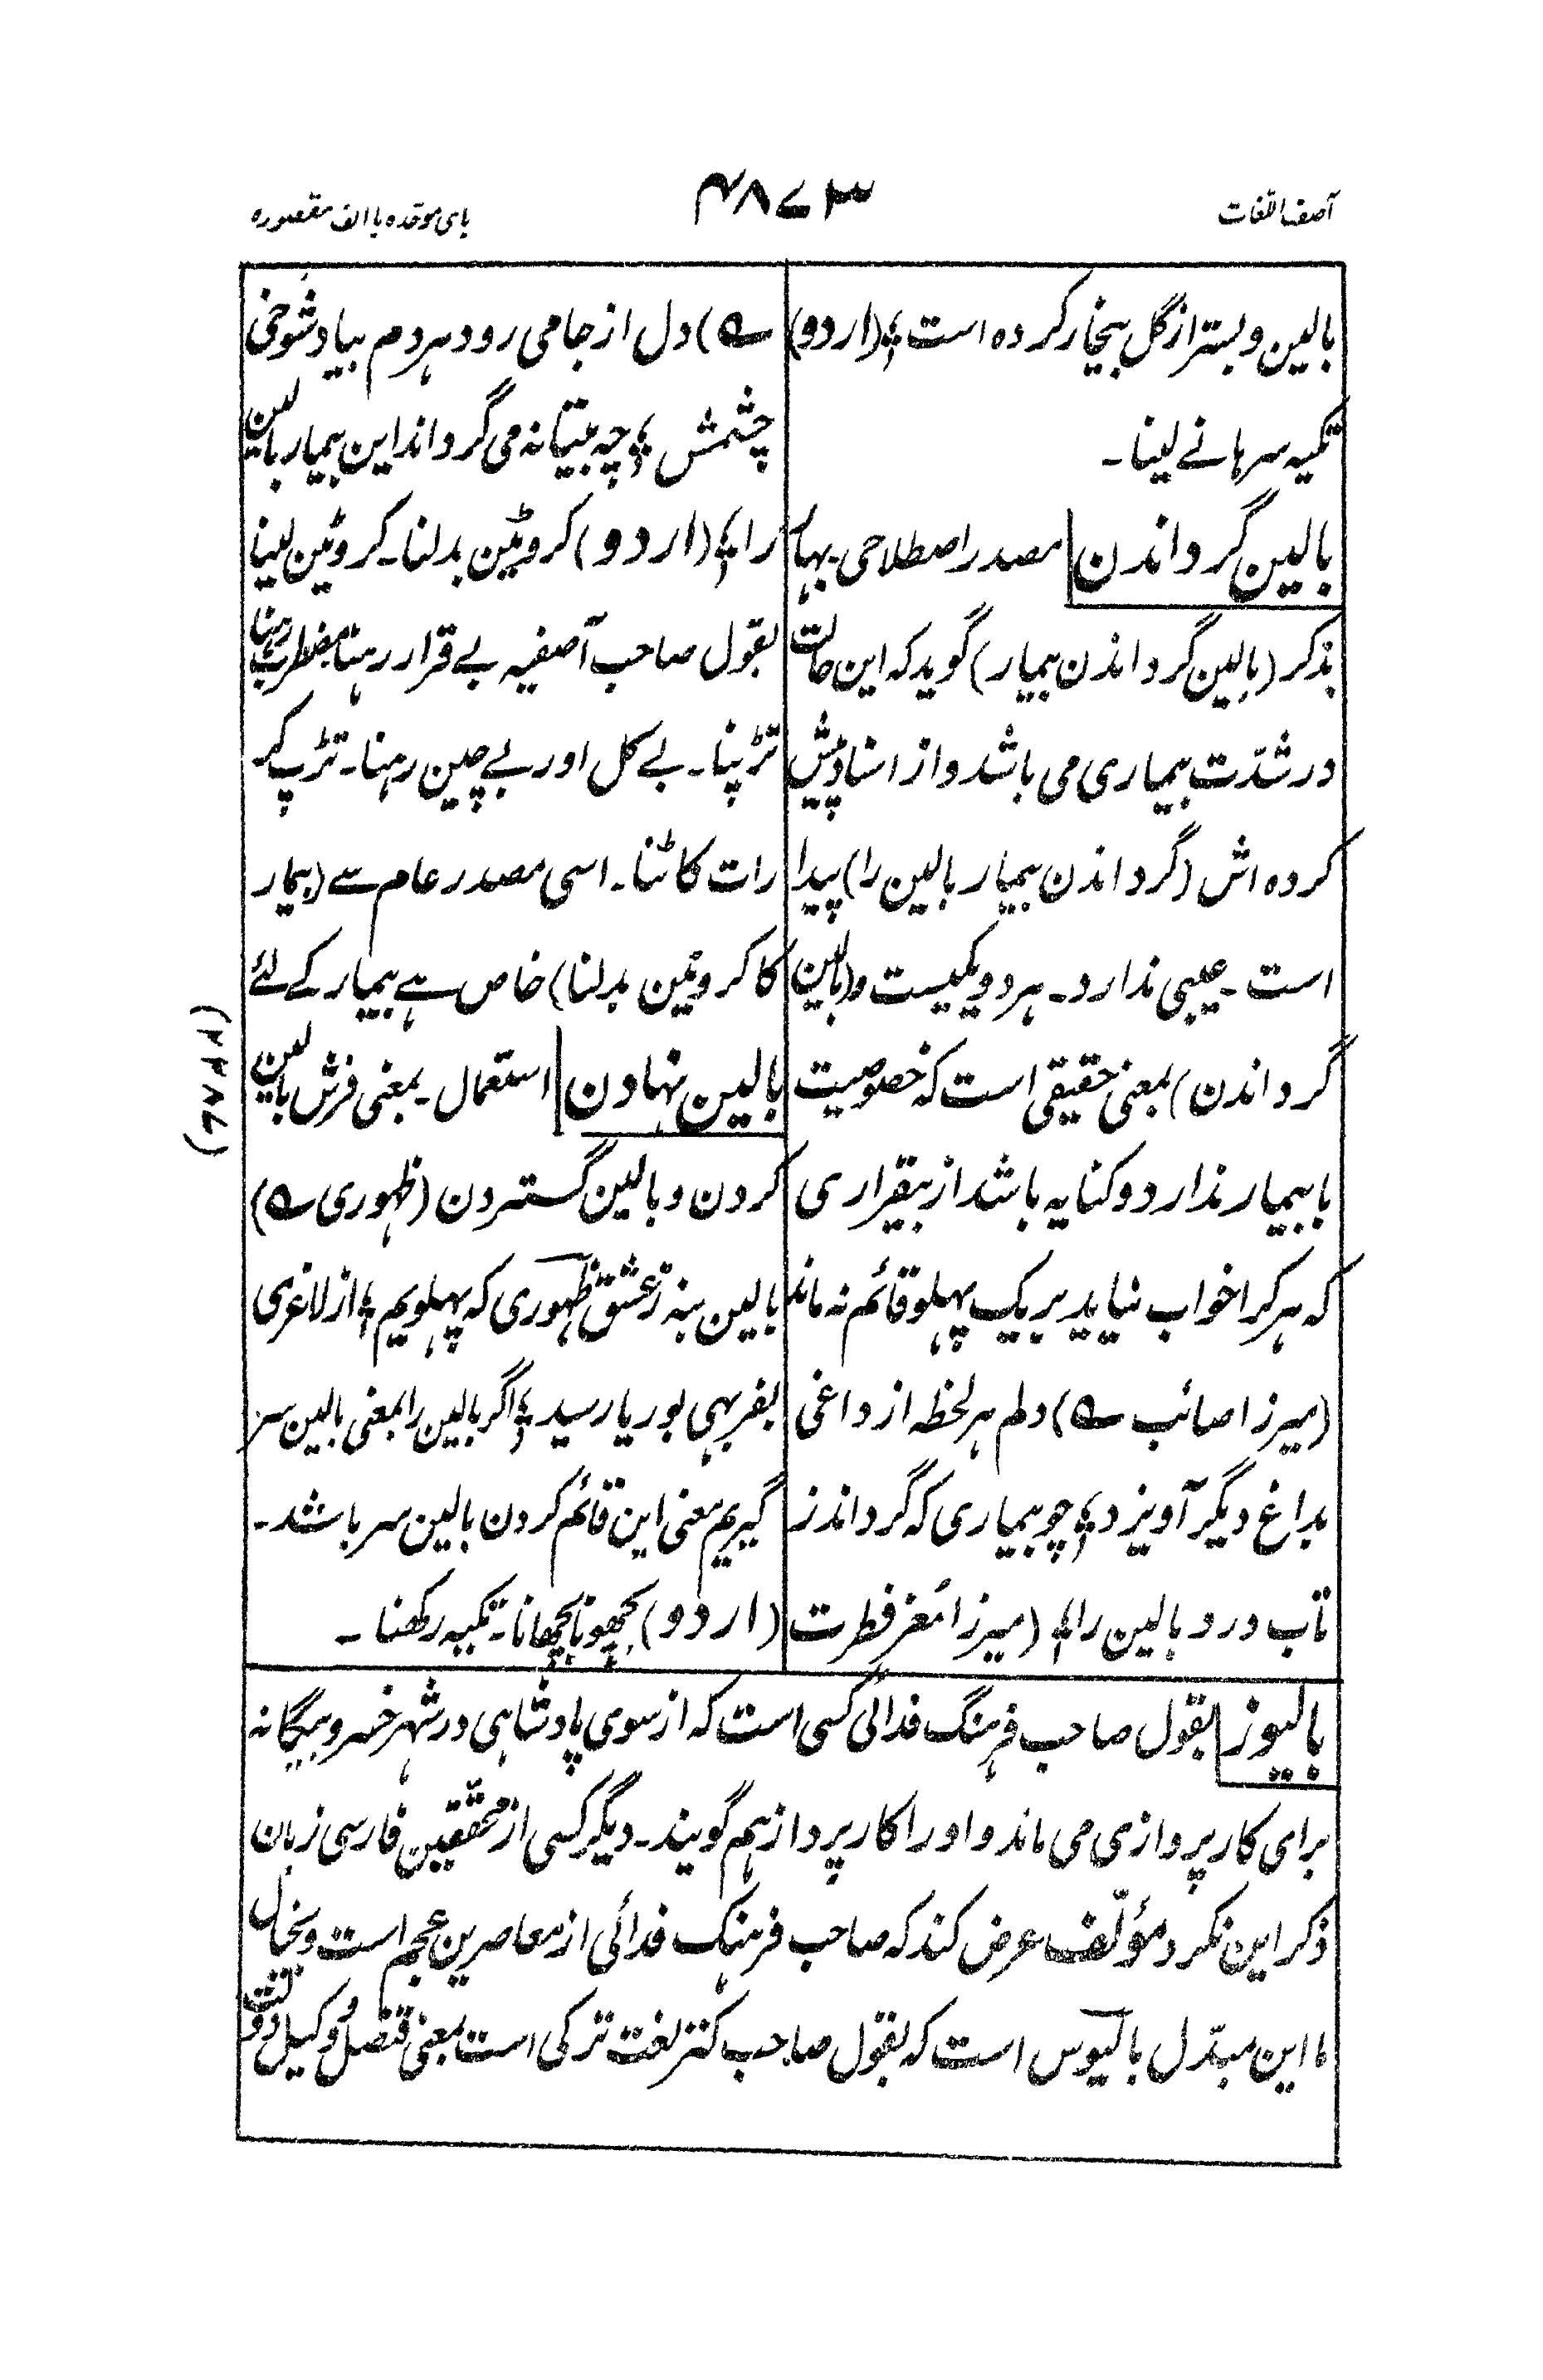 آصف اللغات
۴۸۷۳
بای موحده با الف مقصوره
بالین و بستر از گل بیخار کرده است ؛ (اردو)
تکیه سرہانے لینا۔
بالین گرداندن مصدر اصطلاحی۔ بہار
بذکر (بالین گرداندن بیمار) گوید که این حالت
در شدّت بیماری می باشد و از اسناد پیش
کرده اش (گرداندن بیمار بالین را) پیدا
است۔ عیبی ندارد۔ هر دو یکیست و (بالین
گرداندن) بمعنی حقیقی است که خصوصیت
با بیمار ندارد و کنایه باشد از بیقراری
که هر کرا خواب نیاید بر یک پهلو قائم نه ماند
(میرزا صائب ؎) دلم هر لحظه از داغی
بداغ دیگر آویزد ؛ چو بیماری که گرداند ز
تاب درد بالین را ؛ (میرزا معز فطرت
؎) دل از جا می رود هر دم بیاد شوخی
چشمش ؛ چه بیتابانه می گرداند این بیمار بالین
را ؛ (اردو) کروٹین بدلنا۔ کروٹین لینا
بقول صاحب آصفیه بے قرار رہنا مضطرب رہنا
تڑپنا۔ بے کل اور بے چین رہنا۔ تڑپ کر
رات کاٹنا۔ اسی مصدر عام سے (بیمار
کا کروٹین بدلنا) خاص ہے بیمار کے لئے
بالین نهادن استعمال۔ بمعنی فرش بالین
کردن و بالین گستردن (ظهوری ؎)
بالین بنه ز عشق ظهوری که پهلویم ؛ از لاغری
بفربهی بوریا رسید ؛ اگر بالین را بمعنی بالین سر
گیریم معنی این قائم کردن بالین سر باشد۔
(اردو) بچھونا بچھانا۔ تکیه رکھنا۔
بالیوز بقول صاحب فرهنگ فدائی کسی است که از سوی پادشاهی در شهر خسرو بیگانه
برای کارپردازی می ماند و او را کارپرداز هم گویند۔ دیگر کسی از محققین فارسی زبان
ذکر این نکرد مؤلّف عرض کند که صاحب فرهنگ فدائی از معاصرین عجم است و بخیال
ما این مبدّل بالیوس است که بقول صاحب کنز لغت ترکی است بمعنی قنصل و وکیل دولت